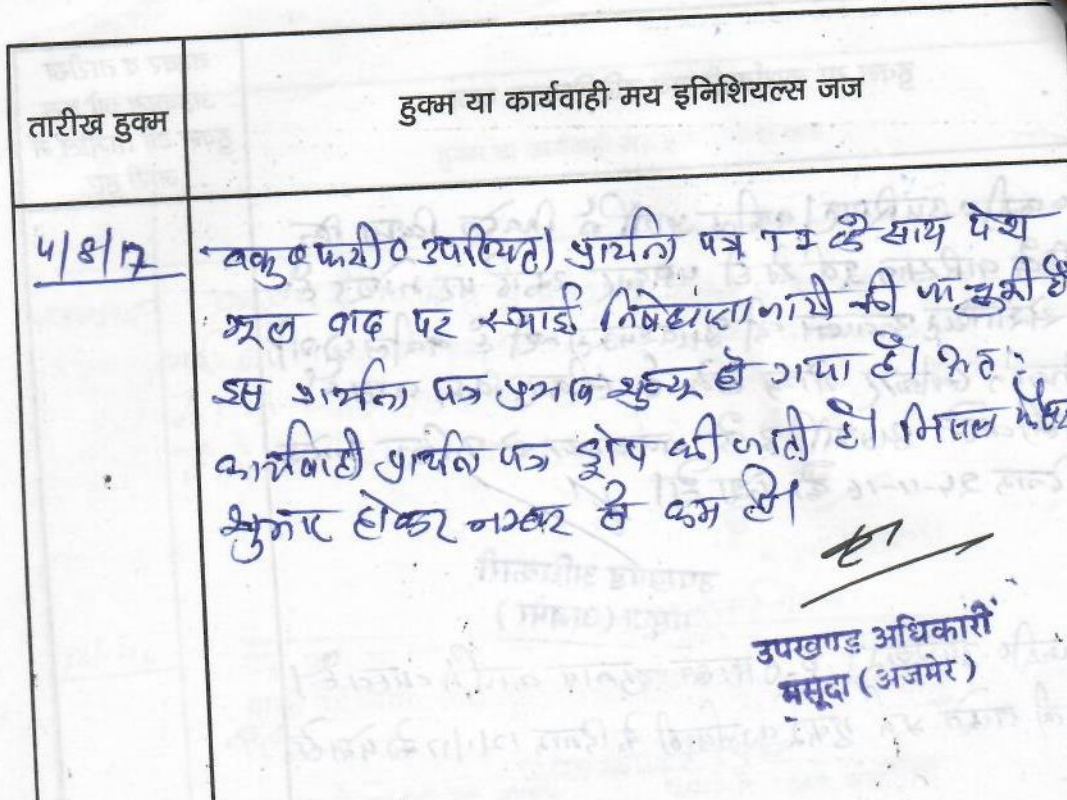 हुक्म या कार्यवाही मय इनिशियल्स जज
तारीख हुक्म
4/8/17
उपस्थित। प्रार्थना पत्र T I के साथ पेश
मूल वाद पर स्थाई निषेधाज्ञा जारी की जा चुकी है
इस प्रार्थना पत्र प्रभाव शून्य हो गया है। अतः
कार्यवाही प्रार्थना पत्र ड्रोप की जाती है। मिसल फैसल
शुमार होकर नम्बर से कम हो।
उपखण्ड अधिकारी
मसूदा (अजमेर)